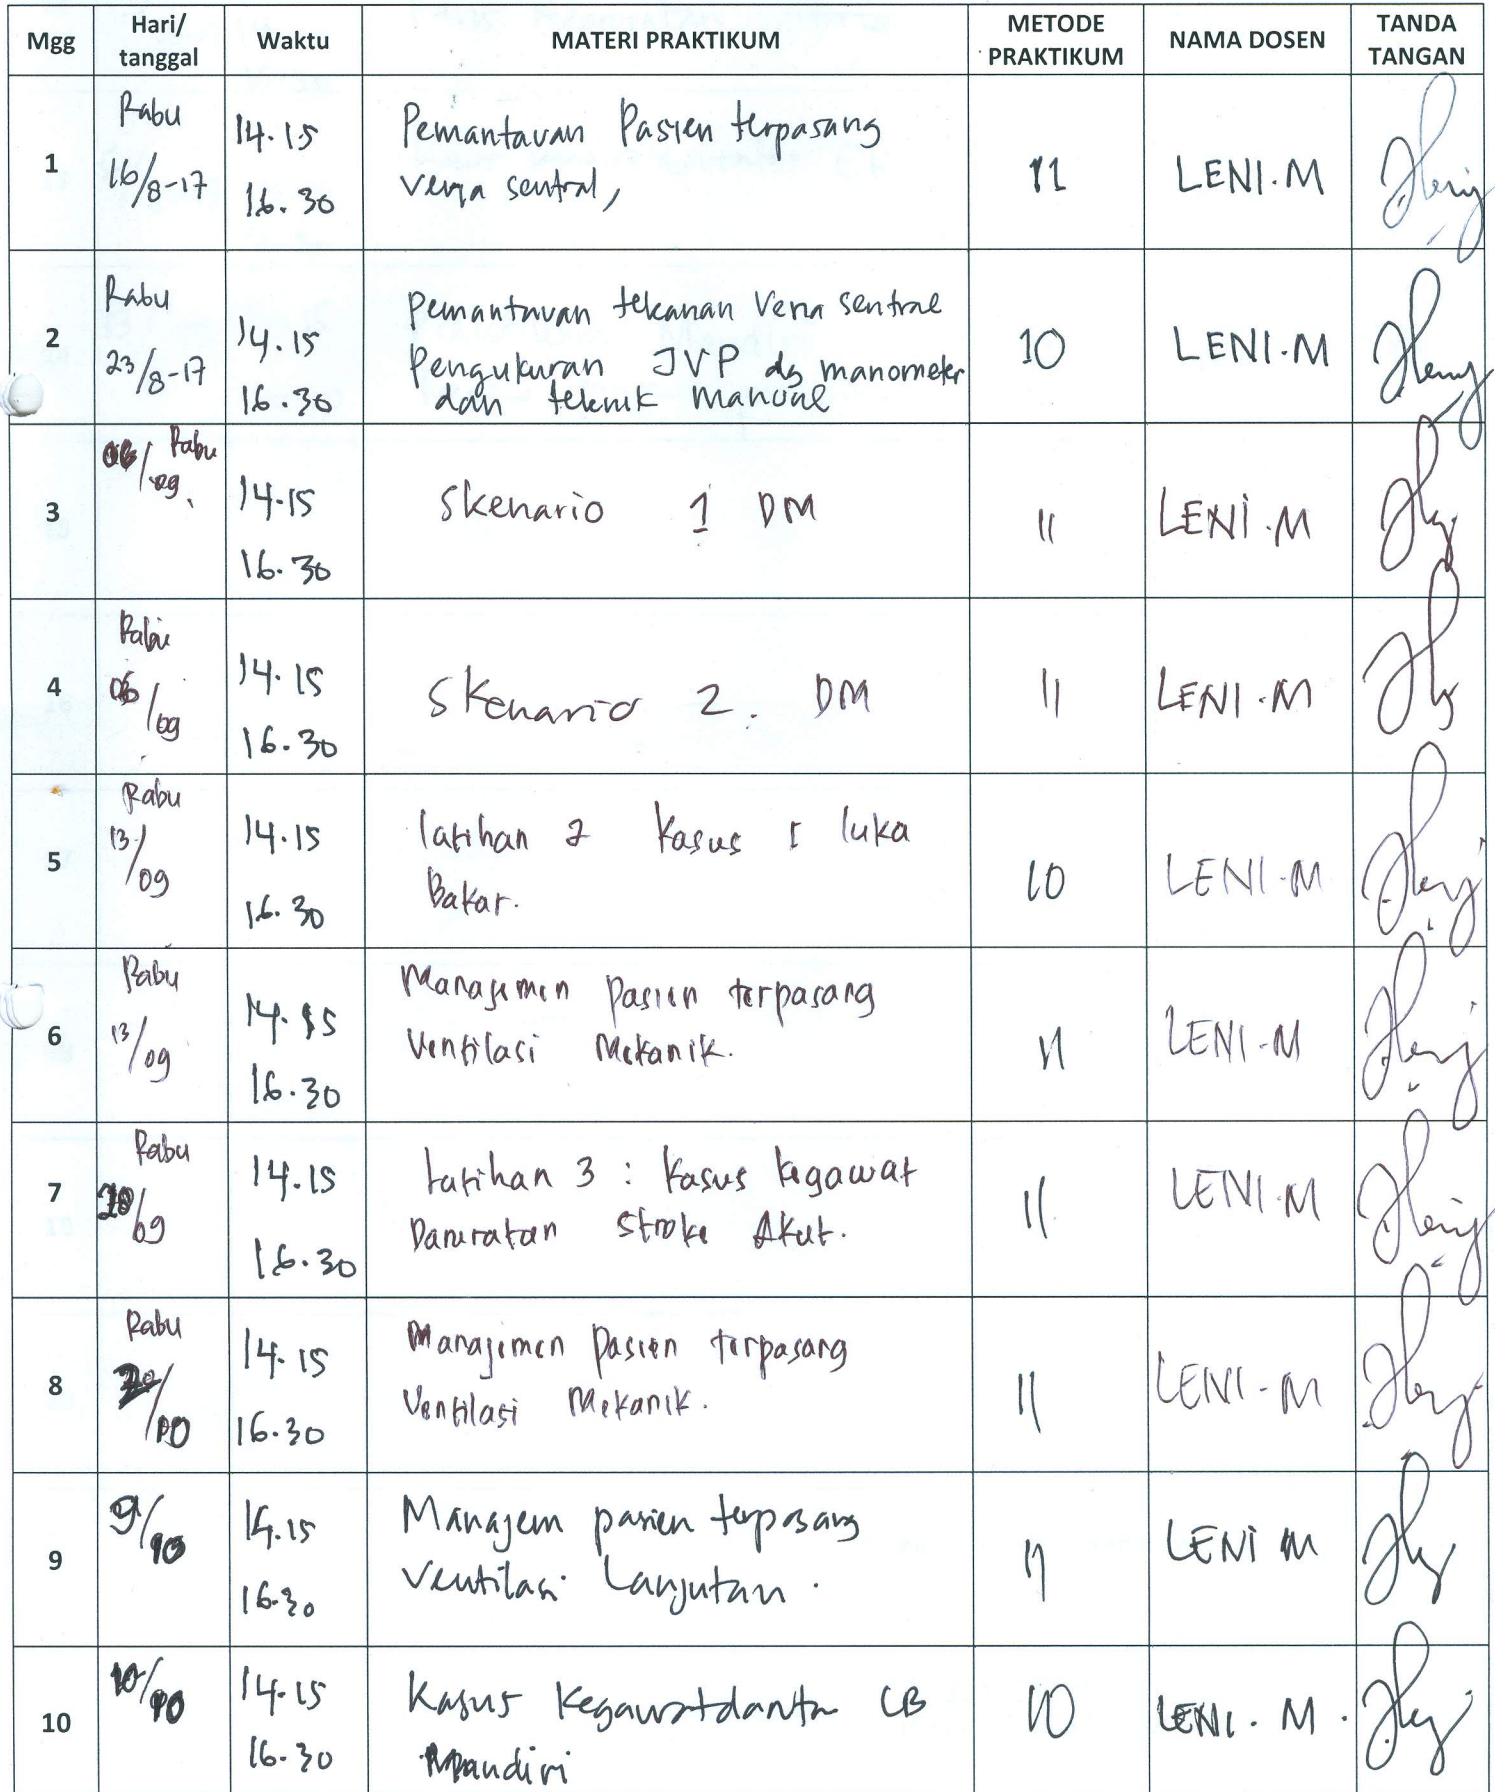 Mgg Hari/ tanggal Waktu MATERI PRAKTIKUM METODE PRAKTIKUM NAMA DOSEN TANDA TANGAN
1 Rabu 16/8-17 14.15 16.30 Pemantauan Pasien terpasang vena sentral, 11 LENI.M
2 Rabu 23/8-17 14.15 16.30 Pemantauan tekanan Vena sentral Pengukuran JVP dg manometer dan teknik manual 10 LENI.M
3 06/09 Rabu 14.15 16.30 Skenario 1 DM 11 LENI.M
4 Rabu 06/09 14.15 16.30 Skenario 2. DM 11 LENI.M
5 Rabu 13/09 14.15 16.30 latihan 2 Kasus : luka Bakar. 10 LENI.M
6 Rabu 13/09 14.15 16.30 Manajemen pasien terpasang Ventilasi Mekanik. 11 LENI-M
7 Rabu 20/09 14.15 16.30 Latihan 3 : Kasus kegawat Daruratan Stroke Akut. 11 LENI.M
8 Rabu 14.15 16.30 Manajemen pasien terpasang Ventilasi Mekanik. 11 LENI-M
9 9/10 14.15 16.30 Manajem pasien terpasang Ventilasi Lanjutan. 11 LENI M
10 10/10 14.15 16.30 Kasus LB Mandiri 10 LENI. M.